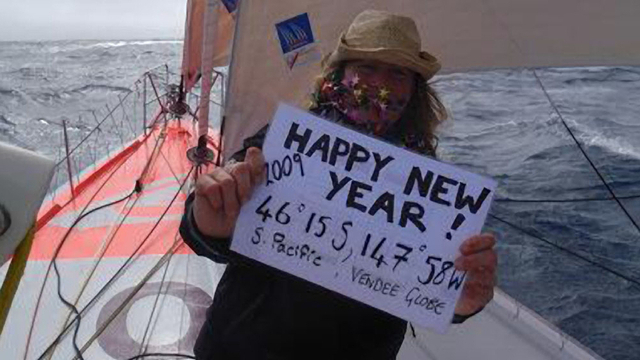 HAPPY NEW
2009 YEAR!
46°15 S, 147°58W
S. Pacific, VENDEE GLOBE